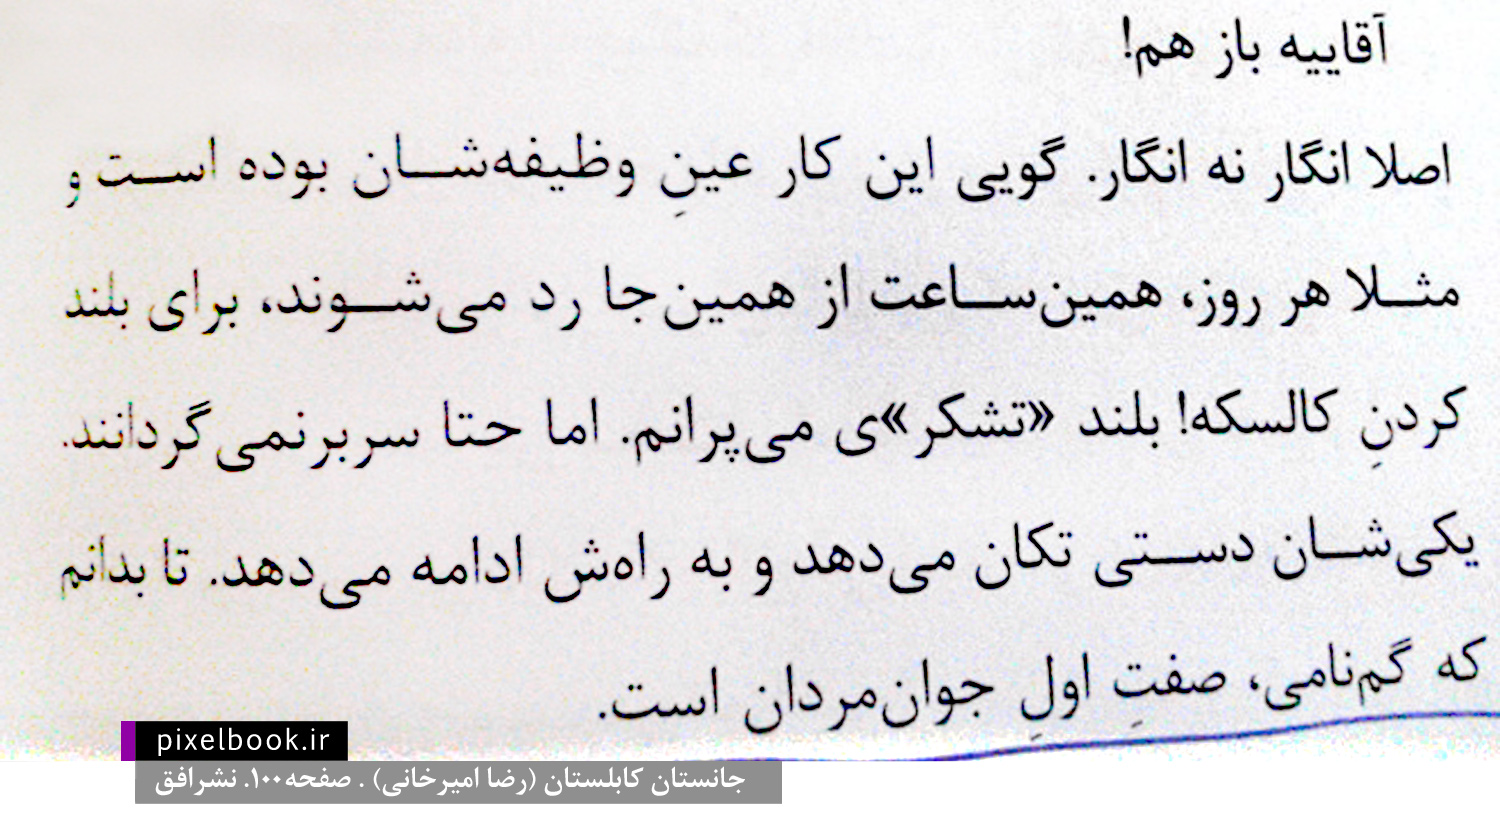 آقاییه باز هم!
اصلا انگار نه انگار. گویی این کار عینِ وظیفه‌شـان بوده اسـت و
مثـلا هر روز، همین‌سـاعت از همین‌جا رد می‌شـوند، برای بلند
کردنِ کالسکه! بلند «تشکر»ی می‌پرانم. اما حتا سربرنمی‌گردانند.
یکی‌شـان دسـتی تکان می‌دهد و به راه‌ش ادامه می‌دهد. تا بدانم
که گم‌نامی، صفتِ اولِ جوان‌مردان است.
pixelbook.ir
جانستان کابلستان (رضا امیرخانی) . صفحه۱۰۰. نشرافق